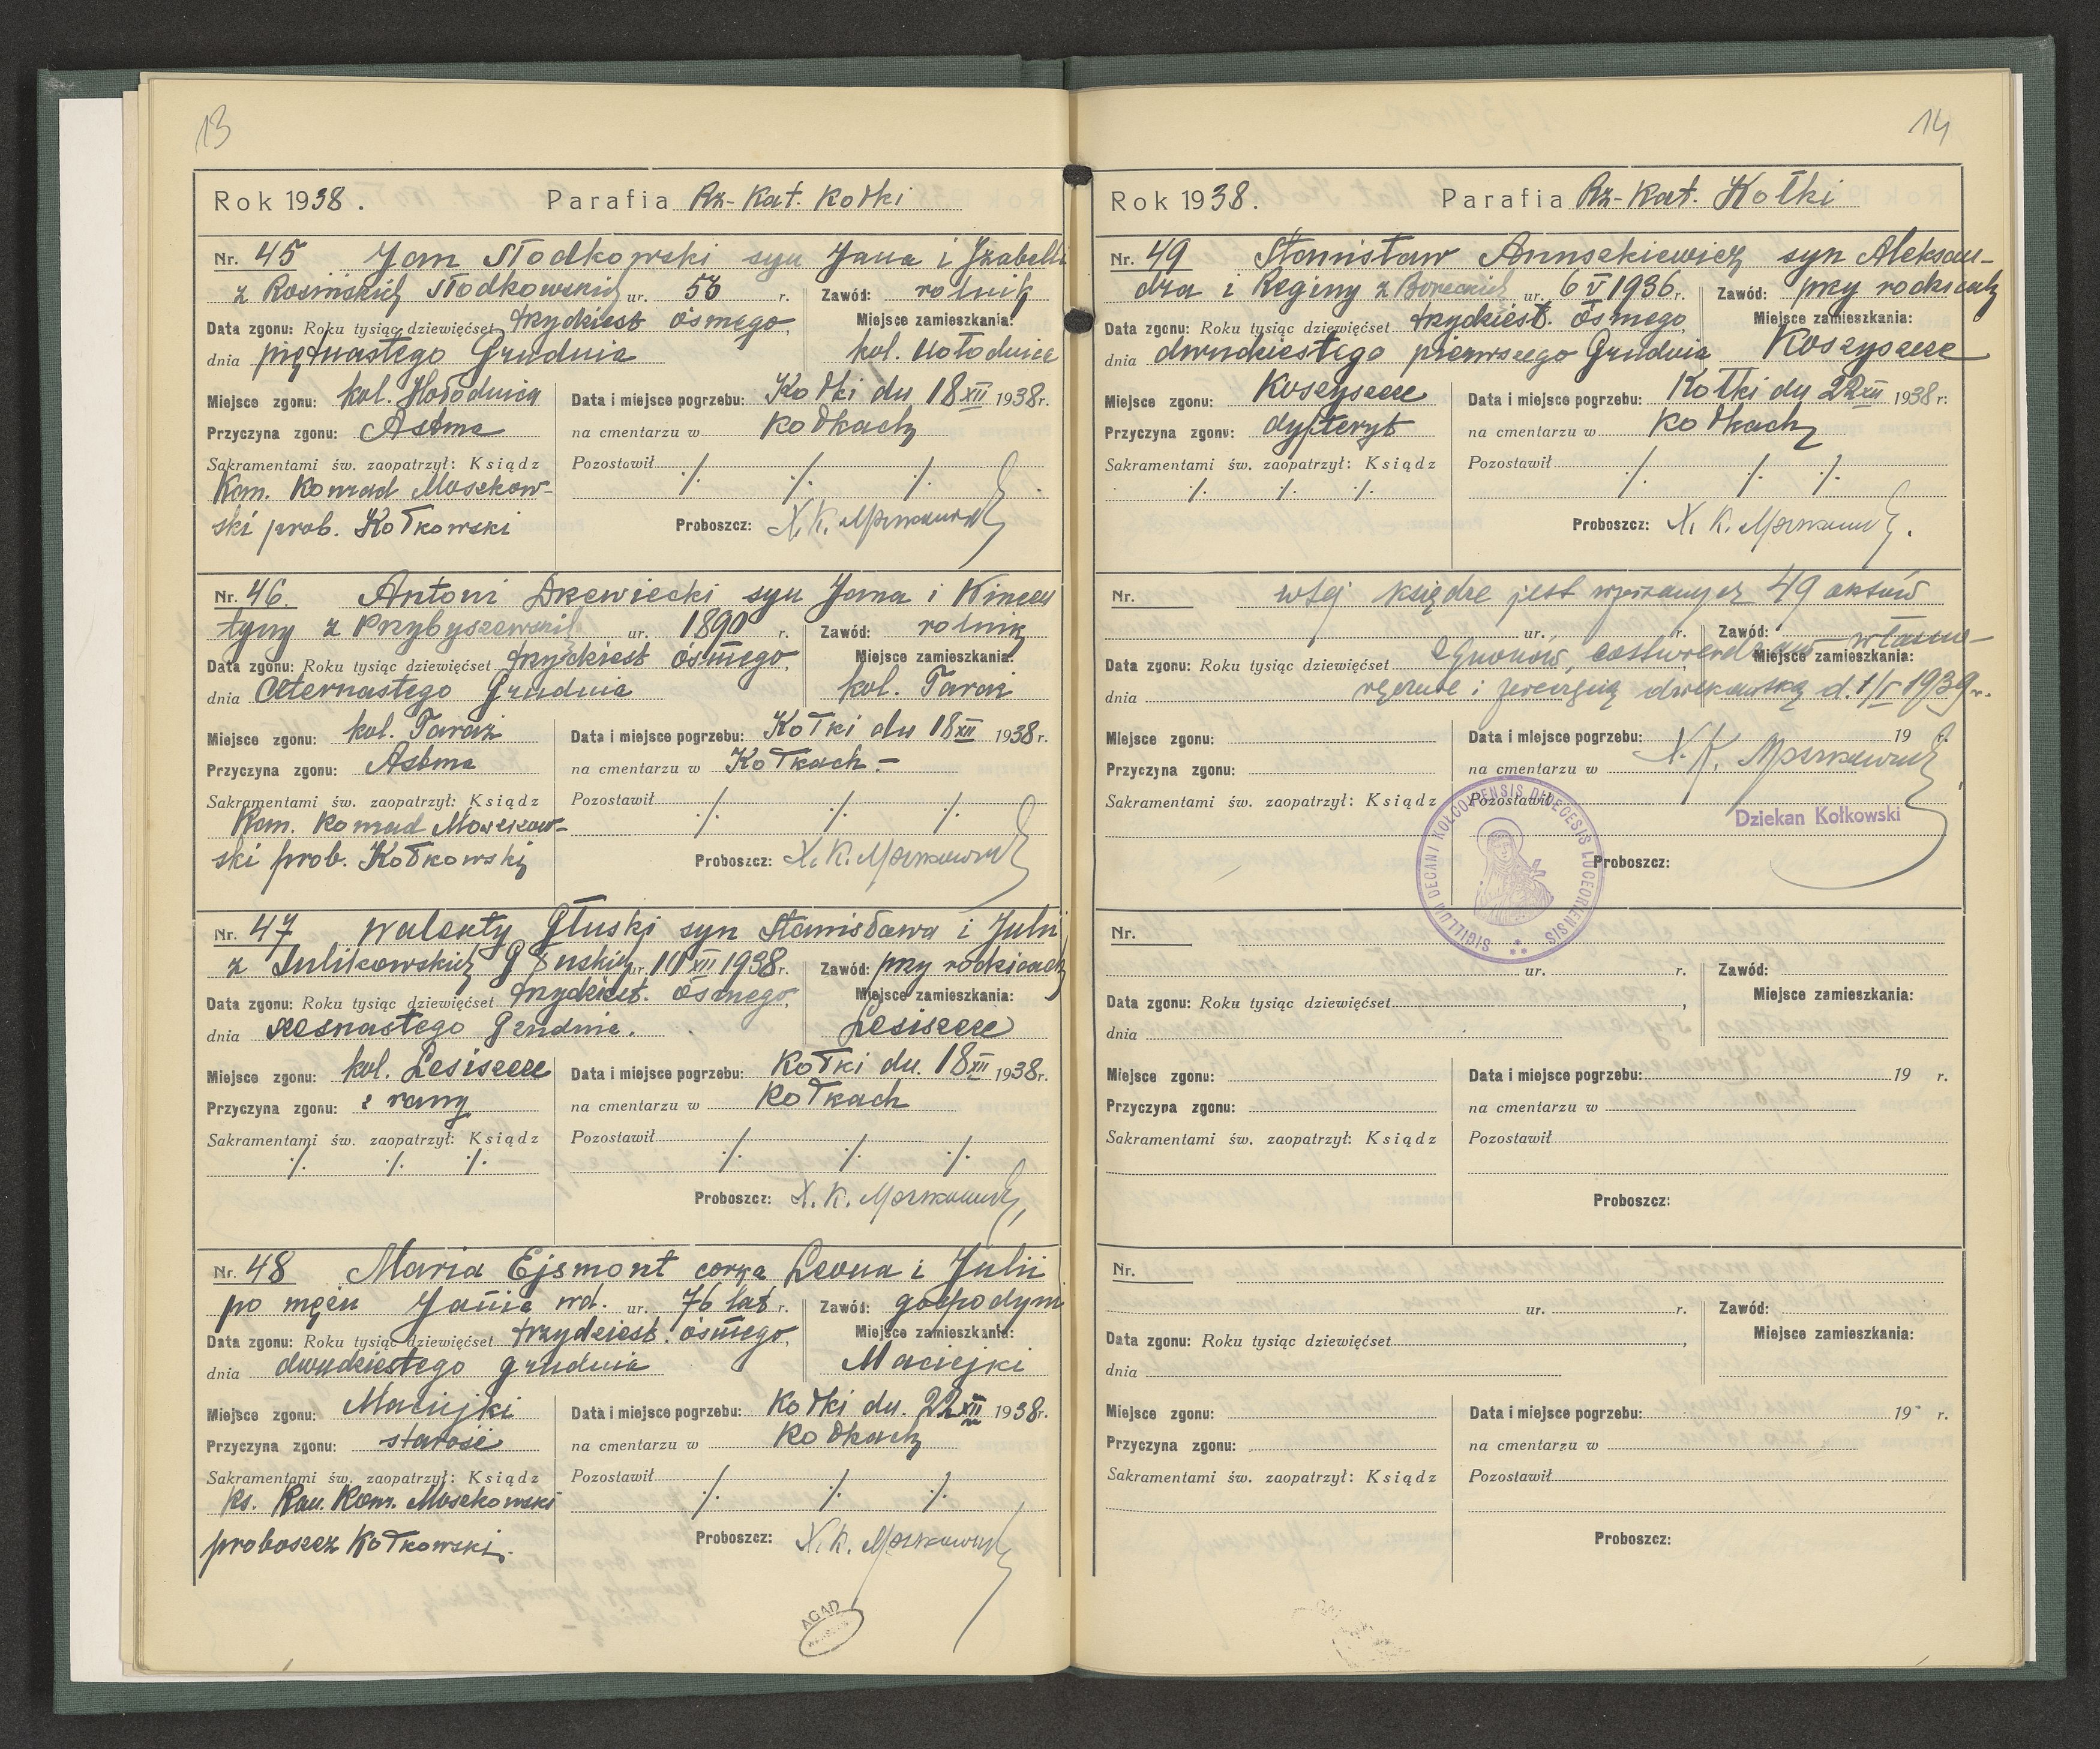 13
Rok 1938. Parafia Rz-Kat. Kołki
Nr. 45 Jan Słodkowski syn Jana i Izabelli
z Rosińskich Słodkowskich ur. 56 r. Zawód: rolnik
Data zgonu: Roku tysiąc dziewięćset trzydziest ósmego, Miejsce zamieszkania:
dnia piętnastego Grudnia kol. Hołodnica
Miejsce zgonu: kol. Hołodnica Data i miejsce pogrzebu: Kołki dn 18 XII 1938 r.
Przyczyna zgonu: Astma na cmentarzu w Kołkach
Sakramentami św. zaopatrzył: Ksiądz Pozostawił ./. ./. ./.
Kan. Konrad Moszkow-
ski prob. Kołkowski Proboszcz: X. K. Moszkowski
Nr. 46. Antoni Drzewiecki syn Jana i Wincen
tyny z Przybyszewskich ur. 1890 r. Zawód: rolnik
Data zgonu: Roku tysiąc dziewięćset trzydziest ósmego, Miejsce zamieszkania:
dnia czternastego Grudnia kol. Taraż
Miejsce zgonu: kol. Taraż Data i miejsce pogrzebu: Kołki dn 18 XII 1938 r.
Przyczyna zgonu: Astma na cmentarzu w Kołkach.-
Sakramentami św. zaopatrzył: Ksiądz Pozostawił ./. ./. ./.
Kan. Konrad Moszkow-
ski prob. Kołkowski Proboszcz: X. K. Moszkowski
Nr. 47 Walenty Głuski syn Stanisława i Julii
z Julikowskich Głuskich ur. XII 1938 r. Zawód: przy rodzicach
Data zgonu: Roku tysiąc dziewięćset trzydziest. ósmego, Miejsce zamieszkania:
dnia szesnastego Grudnia. Lesiszcze
Miejsce zgonu: kol. Lesiszcze Data i miejsce pogrzebu: Kołki dn. 18 XII 1938 r.
Przyczyna zgonu: z rany na cmentarzu w Kołkach
Sakramentami św. zaopatrzył: Ksiądz Pozostawił ./. ./. ./.
./. ./. ./.
Proboszcz: X. K. Moszkowski
Nr. 48 Maria Ejsmont corka Leona i Julii
po mężu Janie wd. ur. 76 lat r. Zawód: gospodyni
Data zgonu: Roku tysiąc dziewięćset trzydziest. ósmego, Miejsce zamieszkania:
dnia dwudziestego grudnia Maciejki
Miejsce zgonu: Maciejki Data i miejsce pogrzebu: Kołki dn. 22 XII 1938 r.
Przyczyna zgonu: starość na cmentarzu w Kołkach
Sakramentami św. zaopatrzył: Ksiądz Pozostawił ./. ./. ./.
Ks. Kan. Konr. Moszkowski
proboszcz Kołkowski. Proboszcz: X. K. Moszkowski
AGAD
14
Rok 1938. Parafia Rz-Kat. Kołki
Nr. 49 Stanisław Annszkiewicz syn Aleksan-
dra i Reginy z Boreckich ur. 6 V 1936 r. Zawód: przy rodzicach
Data zgonu: Roku tysiąc dziewięćset trzydziest. ósmego, Miejsce zamieszkania:
dnia dwudziestego pierwszego Grudnia Koszyszcze
Miejsce zgonu: Koszyszcze Data i miejsce pogrzebu: Kołki dn 22 XII 1938 r.
Przyczyna zgonu: dyfteryt na cmentarzu w Kołkach
Sakramentami św. zaopatrzył: Ksiądz Pozostawił ./. ./. ./.
./. ./. ./.
Proboszcz: X. K. Moszkowski.
Nr. wtej księdze jest wpisanych 49 aktów
ur. r. Zawód:
Data zgonu: Roku tysiąc dziewięćset zgonów, co stwierdzam własno- Miejsce zamieszkania:
dnia ręcznie i pieczęcią dziekańską d. 1/I 1939 r.
Miejsce zgonu: Data i miejsce pogrzebu: 19 r.
Przyczyna zgonu: na cmentarzu w X. K. Moszkowski
Sakramentami św. zaopatrzył: Ksiądz Pozostawił
Dziekan Kołkowski
SIGILLUM DECANI KOŁCOVIENSIS DIOECESIS LUCEORIENSIS
Proboszcz:
Nr.
ur. r. Zawód:
Data zgonu: Roku tysiąc dziewięćset , Miejsce zamieszkania:
dnia
Miejsce zgonu: Data i miejsce pogrzebu: 19 r.
Przyczyna zgonu: na cmentarzu w
Sakramentami św. zaopatrzył: Ksiądz Pozostawił
Proboszcz:
Nr.
ur. r. Zawód:
Data zgonu: Roku tysiąc dziewięćset , Miejsce zamieszkania:
dnia
Miejsce zgonu: Data i miejsce pogrzebu: 19 r.
Przyczyna zgonu: na cmentarzu w
Sakramentami św. zaopatrzył: Ksiądz Pozostawił
Proboszcz: